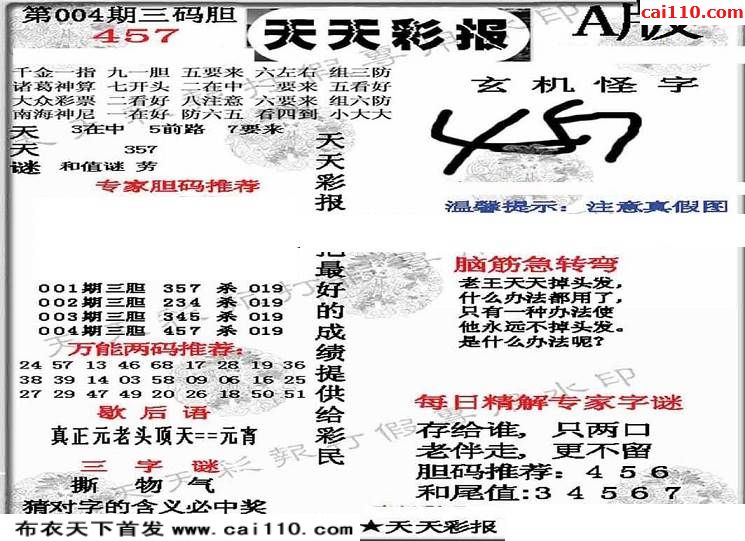 第004期三码胆
457
天天彩报
A版
cai110.com
千金一指 九一胆 五要来 六左右 组三防
诸葛神算 七开头 二在中 一要来 五看好
大众彩票 二看好 八注意 六要来 组六防
南海神尼 一在好 防六五 看四到 小大大
天 3在中 5前路 7要来
天 357
谜 和值谜 劳
专家胆码推荐
001期三胆 357 杀 019
002期三胆 234 杀 019
003期三胆 345 杀 019
004期三胆 457 杀 019
万能两码推荐:
24 57 13 46 68 17 28 19 36
38 39 14 03 58 09 06 16 25
27 29 47 49 20 26 18 50 51
歇后语
真正元老头顶天==元宵
三字谜
撕 物 气
猜对字的含义必中奖
天天彩报
把最好的成绩提供给彩民
玄机怪字
457
温馨提示：注意真假图
脑筋急转弯
老王天天掉头发,
什么办法都用了,
只有一种办法使
他永远不掉头发。
是什么办法呢?
每日精解专家字谜
存给谁, 只两口
老伴走, 更不留
胆码推荐: 4 5 6
和尾值:3 4 5 6 7
布衣天下首发 www.cai110.com
★天天彩报